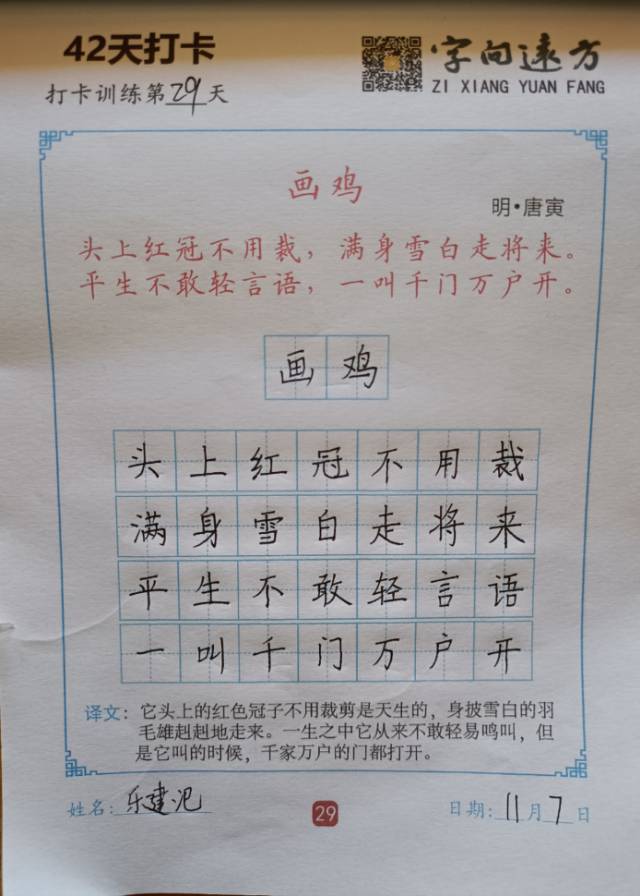 42天打卡
字向远方
ZI XIANG YUAN FANG
打卡训练第29天
画鸡
明·唐寅
头上红冠不用裁，满身雪白走将来。
平生不敢轻言语，一叫千门万户开。
画鸡
头上红冠不用裁
满身雪白走将来
平生不敢轻言语
一叫千门万户开
译文：它头上的红色冠子不用裁剪是天生的，身披雪白的羽
毛雄赳赳地走来。一生之中它从来不敢轻易鸣叫，但
是它叫的时候，千家万户的门都打开。
姓名：乐建
29
日期：11月7日